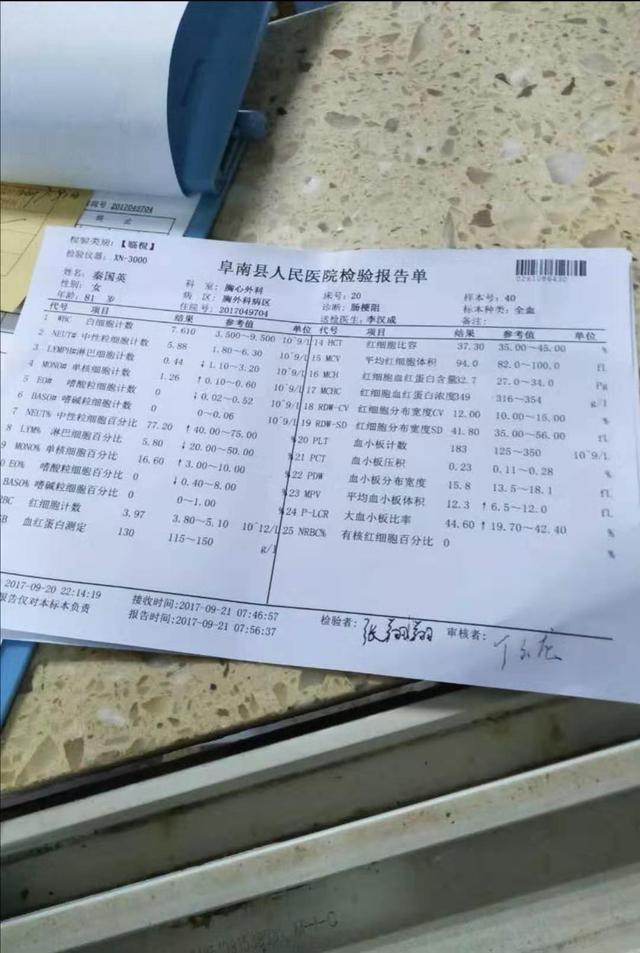 院号 2017049704
终 止
检验类房:【临检】
检验仪器: XN-3000
阜南县人民医院检验报告单
姓名: 秦国英
科 室: 胸心外科
床号: 20
样本号: 40
性别: 女
病 区: 胸外科病区
诊断: 肠梗阻
标本种类: 全血
年龄: 81 岁
住院号: 2017049704
送检医生: 李汉威
备注:
代号 项目 结果 参考值 单位 代号 项目 结果 参考值 单位
1 WBC 白细胞计数 7.610 3.500~9.500 10^9/L 14 HCT 红细胞比容 37.30 35.00~45.00 %
2 NEUT# 中性粒细胞计数 5.88 1.80~6.30 10^9/L 15 MCV 平均红细胞体积 94.0 82.0~100.0 fL
3 LYMPH# 淋巴细胞计数 0.44 ↓ 1.10~3.20 10^9/L 16 MCH 红细胞血红蛋白含量 32.7 27.0~34.0 Pg
4 MONO# 单核细胞计数 1.26 ↑ 0.10~0.60 10^9/L 17 MCHC 红细胞血红蛋白浓度 349 316~354 g/l
5 EO# 嗜酸粒细胞计数 0 ↓ 0.02~0.52 10^9/L 18 RDW-CV 红细胞分布宽度CV 12.00 10.00~15.00 %
6 BASO# 嗜碱粒细胞计数 0 0~0.06 10^9/L 19 RDW-SD 红细胞分布宽度SD 41.80 35.00~56.00 fL
7 NEUT% 中性粒细胞百分比 77.20 ↑ 40.00~75.00 % 20 PLT 血小板计数 183 125~350 10^9/L
8 LYM% 淋巴细胞百分比 5.80 ↓ 20.00~50.00 % 21 PCT 血小板压积 0.23 0.11~0.28 %
MONO% 单核细胞百分比 16.60 ↑ 3.00~10.00 % 22 PDW 血小板分布宽度 15.8 13.5~18.1 fL
0 EO% 嗜酸粒细胞百分比 0 ↓ 0.40~8.00 % 23 MPV 平均血小板体积 12.3 ↑ 6.5~12.0 fL
BASO% 嗜碱粒细胞百分比 0 0~1.00 % 24 P-LCR 大血小板比率 44.60 ↑ 19.70~42.40 %
RBC 红细胞计数 3.97 3.80~5.10 10^12/L 25 NRBC% 有核红细胞百分比 0 %
GB 血红蛋白测定 130 115~150 g/l
2017-09-20 22:14:19
接收时间: 2017-09-21 07:46:57
检验者: 张翱翔
审核者:
报告仅对本标本负责
报告时间: 2017-09-21 07:56:37